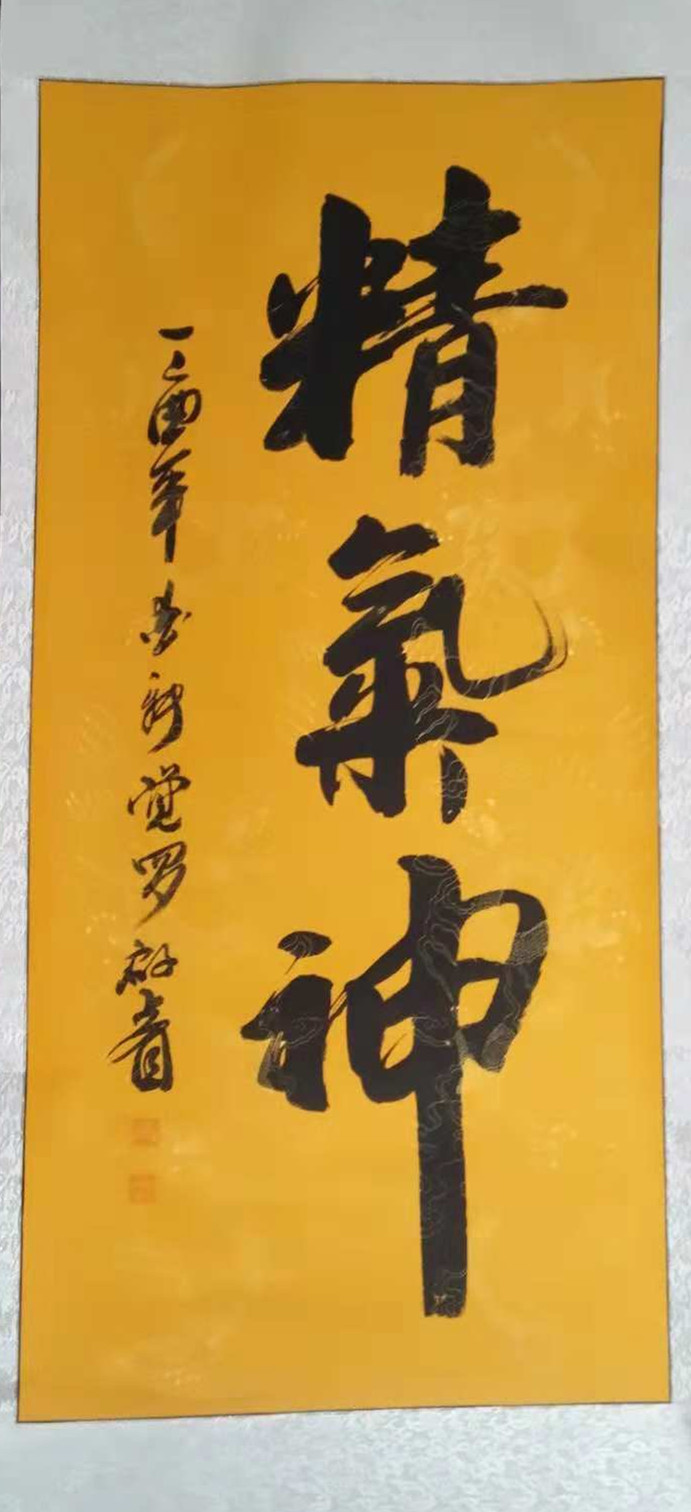 精氣神
酉年 爱新觉罗